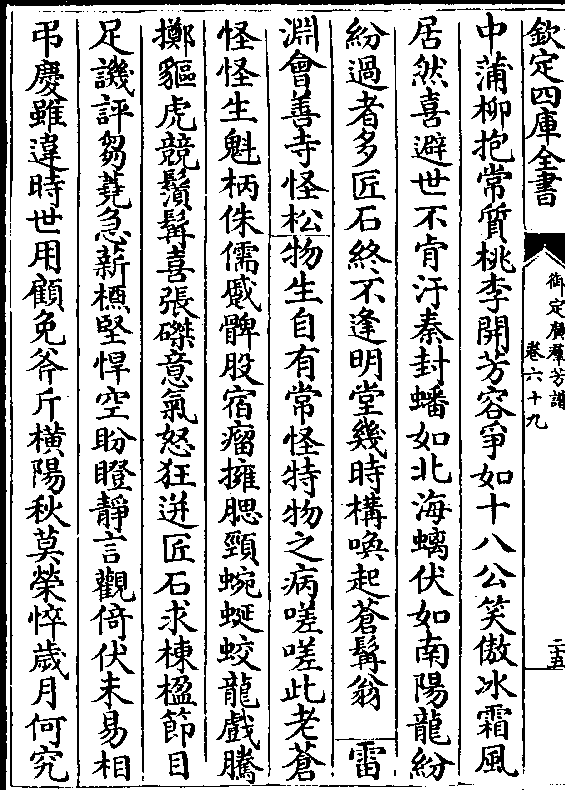 欽定四庫全書
御定廣羣芳譜
卷六十九
二十五
中蒲柳抱常質桃李開芳容爭如十八公笑傲冰霜風
居然喜避世不肯汙秦封蟠如北海螭伏如南陽龍紛
紛過者多匠石終不逢明堂幾時構喚起蒼髯翁 雷
淵會善寺怪松物生自有常怪特物之病嗟嗟此老蒼
怪怪生魁柄侏儒蹙髀股宿瘤擁腮頸蜿蜒蛟龍戲騰
擲貙虎競鬚髯喜張磔意氣怒狂逬匠石求棟楹節目
足譏評芻蕘急薪槱堅悍空盼瞪靜言觀倚伏未易相
弔慶雖違時世用顧免斧斤橫陽秋莫榮悴歲月何究